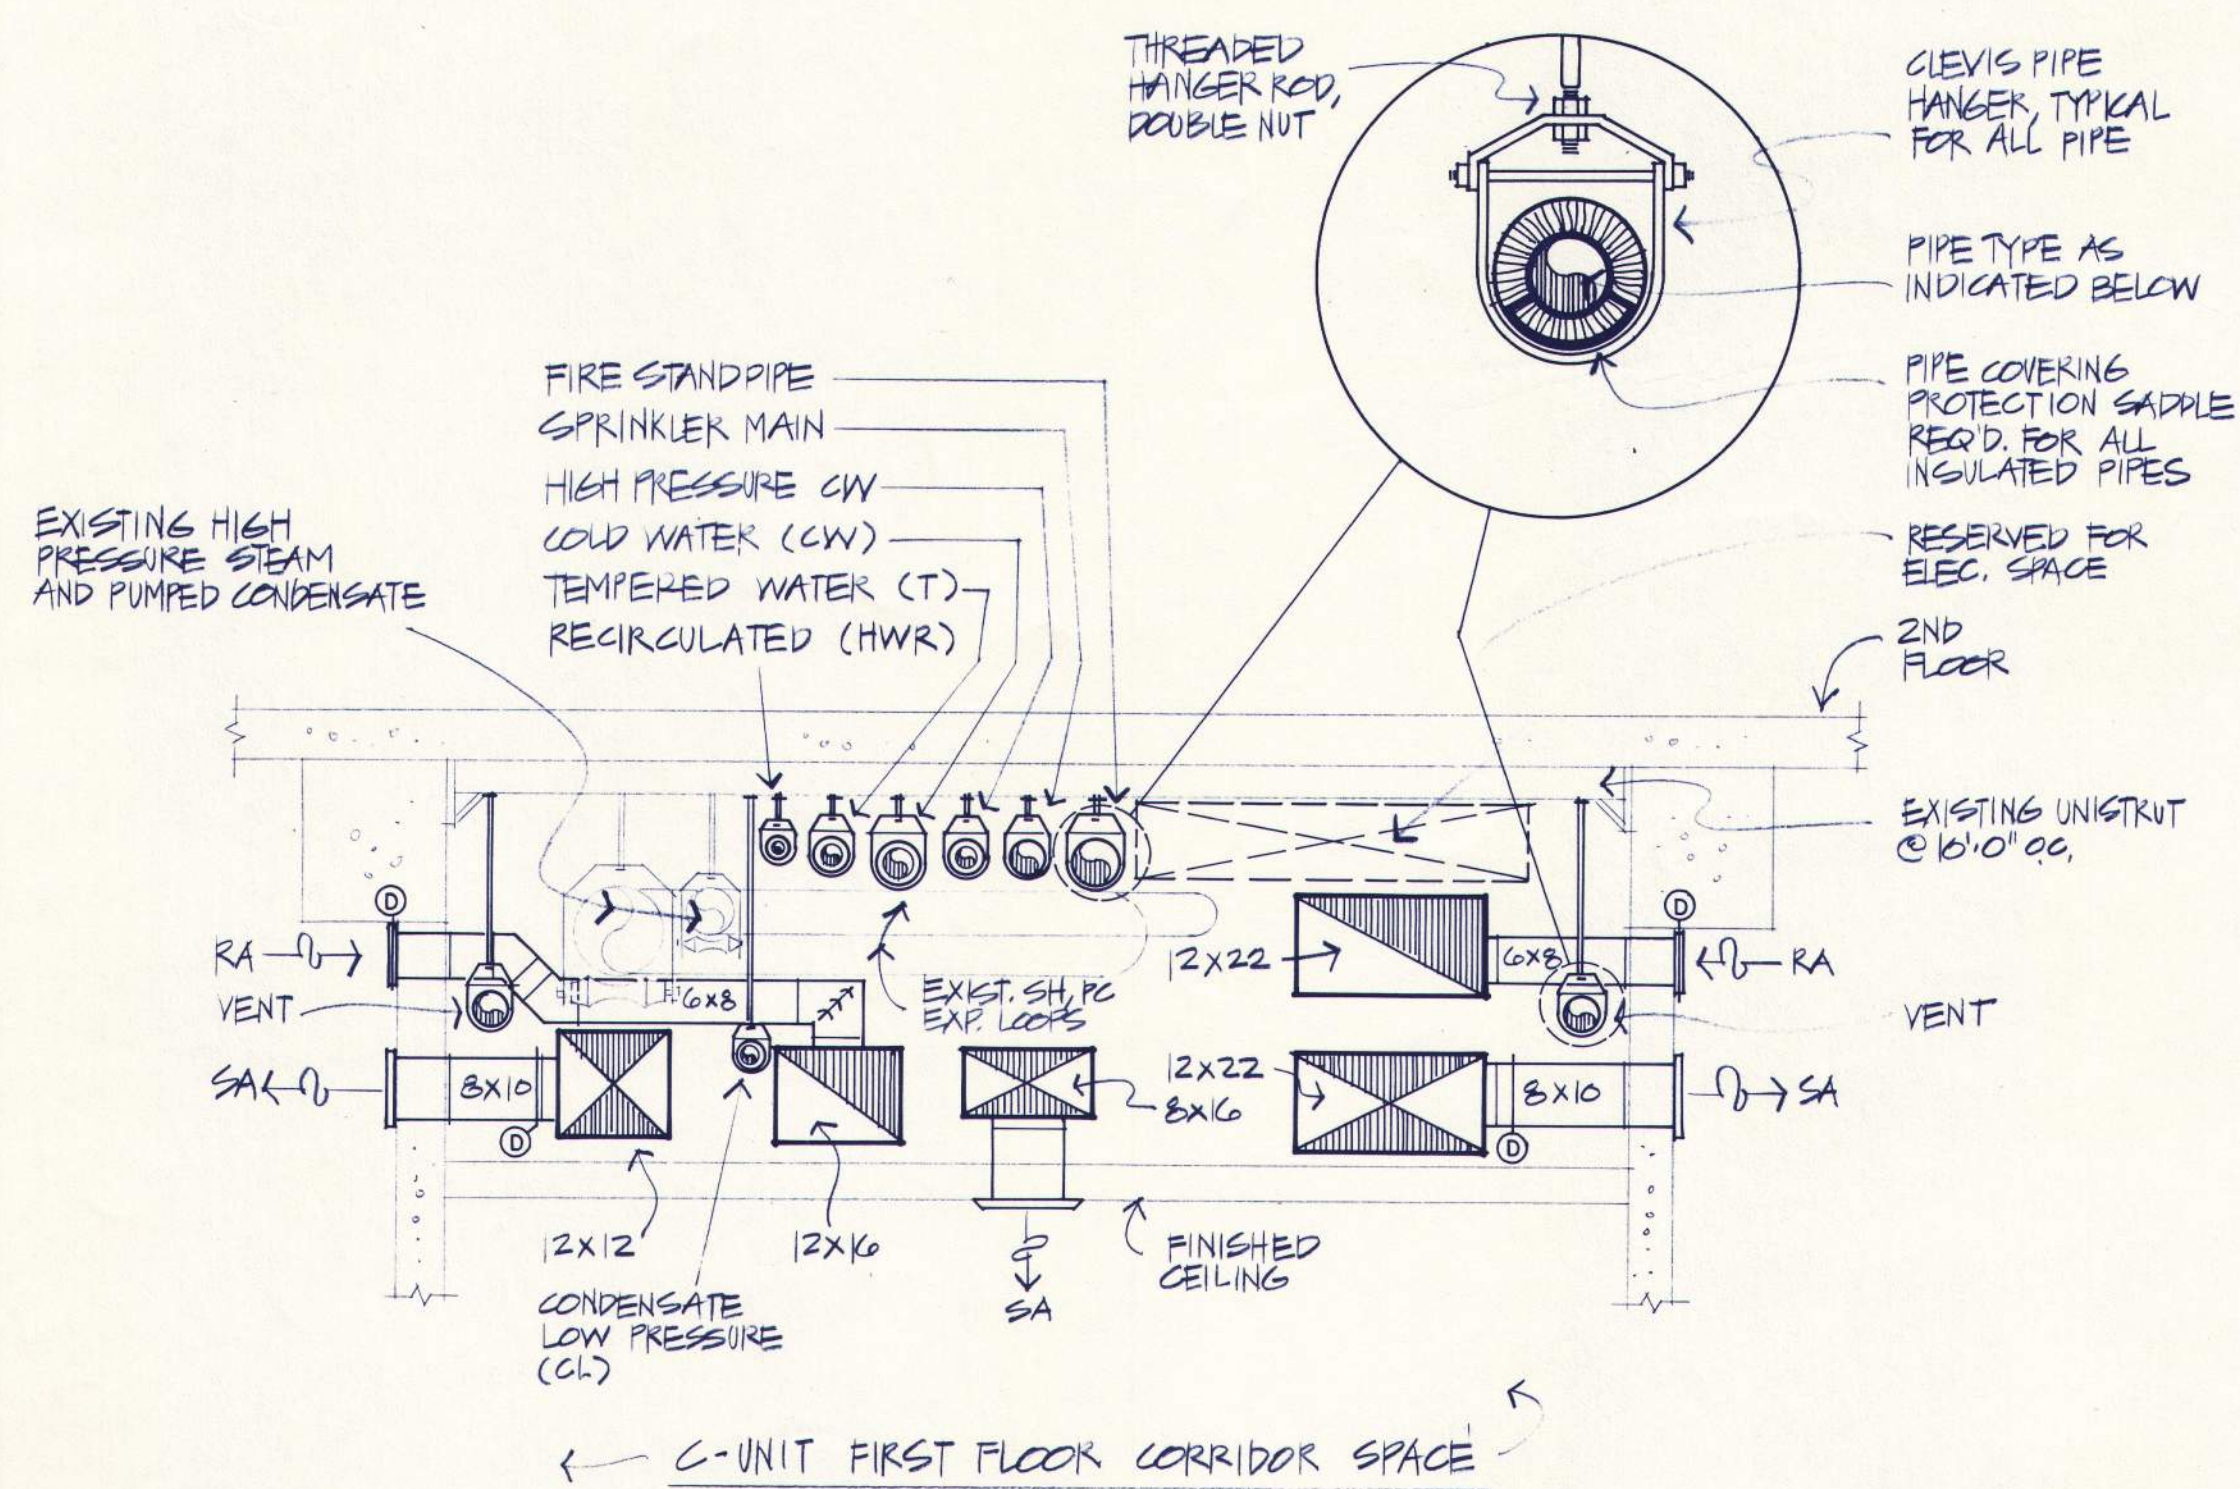 THREADED
HANGER ROD,
DOUBLE NUT
CLEVIS PIPE
HANGER, TYPICAL
FOR ALL PIPE
PIPE TYPE AS
INDICATED BELOW
PIPE COVERING
PROTECTION SADDLE
REQ'D. FOR ALL
INSULATED PIPES
RESERVED FOR
ELEC. SPACE
2ND
FLOOR
FIRE STANDPIPE
SPRINKLER MAIN
HIGH PRESSURE CW
COLD WATER (CW)
TEMPERED WATER (T)
RECIRCULATED (HWR)
EXISTING HIGH
PRESSURE STEAM
AND PUMPED CONDENSATE
EXISTING UNISTRUT
@ 10'.0" O.C.
D
D
RA
12X22
6X8
RA
VENT
6X8
EXIST. SH, PC
EXP. LOOPS
VENT
SA
8X10
12X22
8X16
8X10
SA
D
D
12X12
12X16
FINISHED
CEILING
SA
CONDENSATE
LOW PRESSURE
(CL)
C-UNIT FIRST FLOOR CORRIDOR SPACE